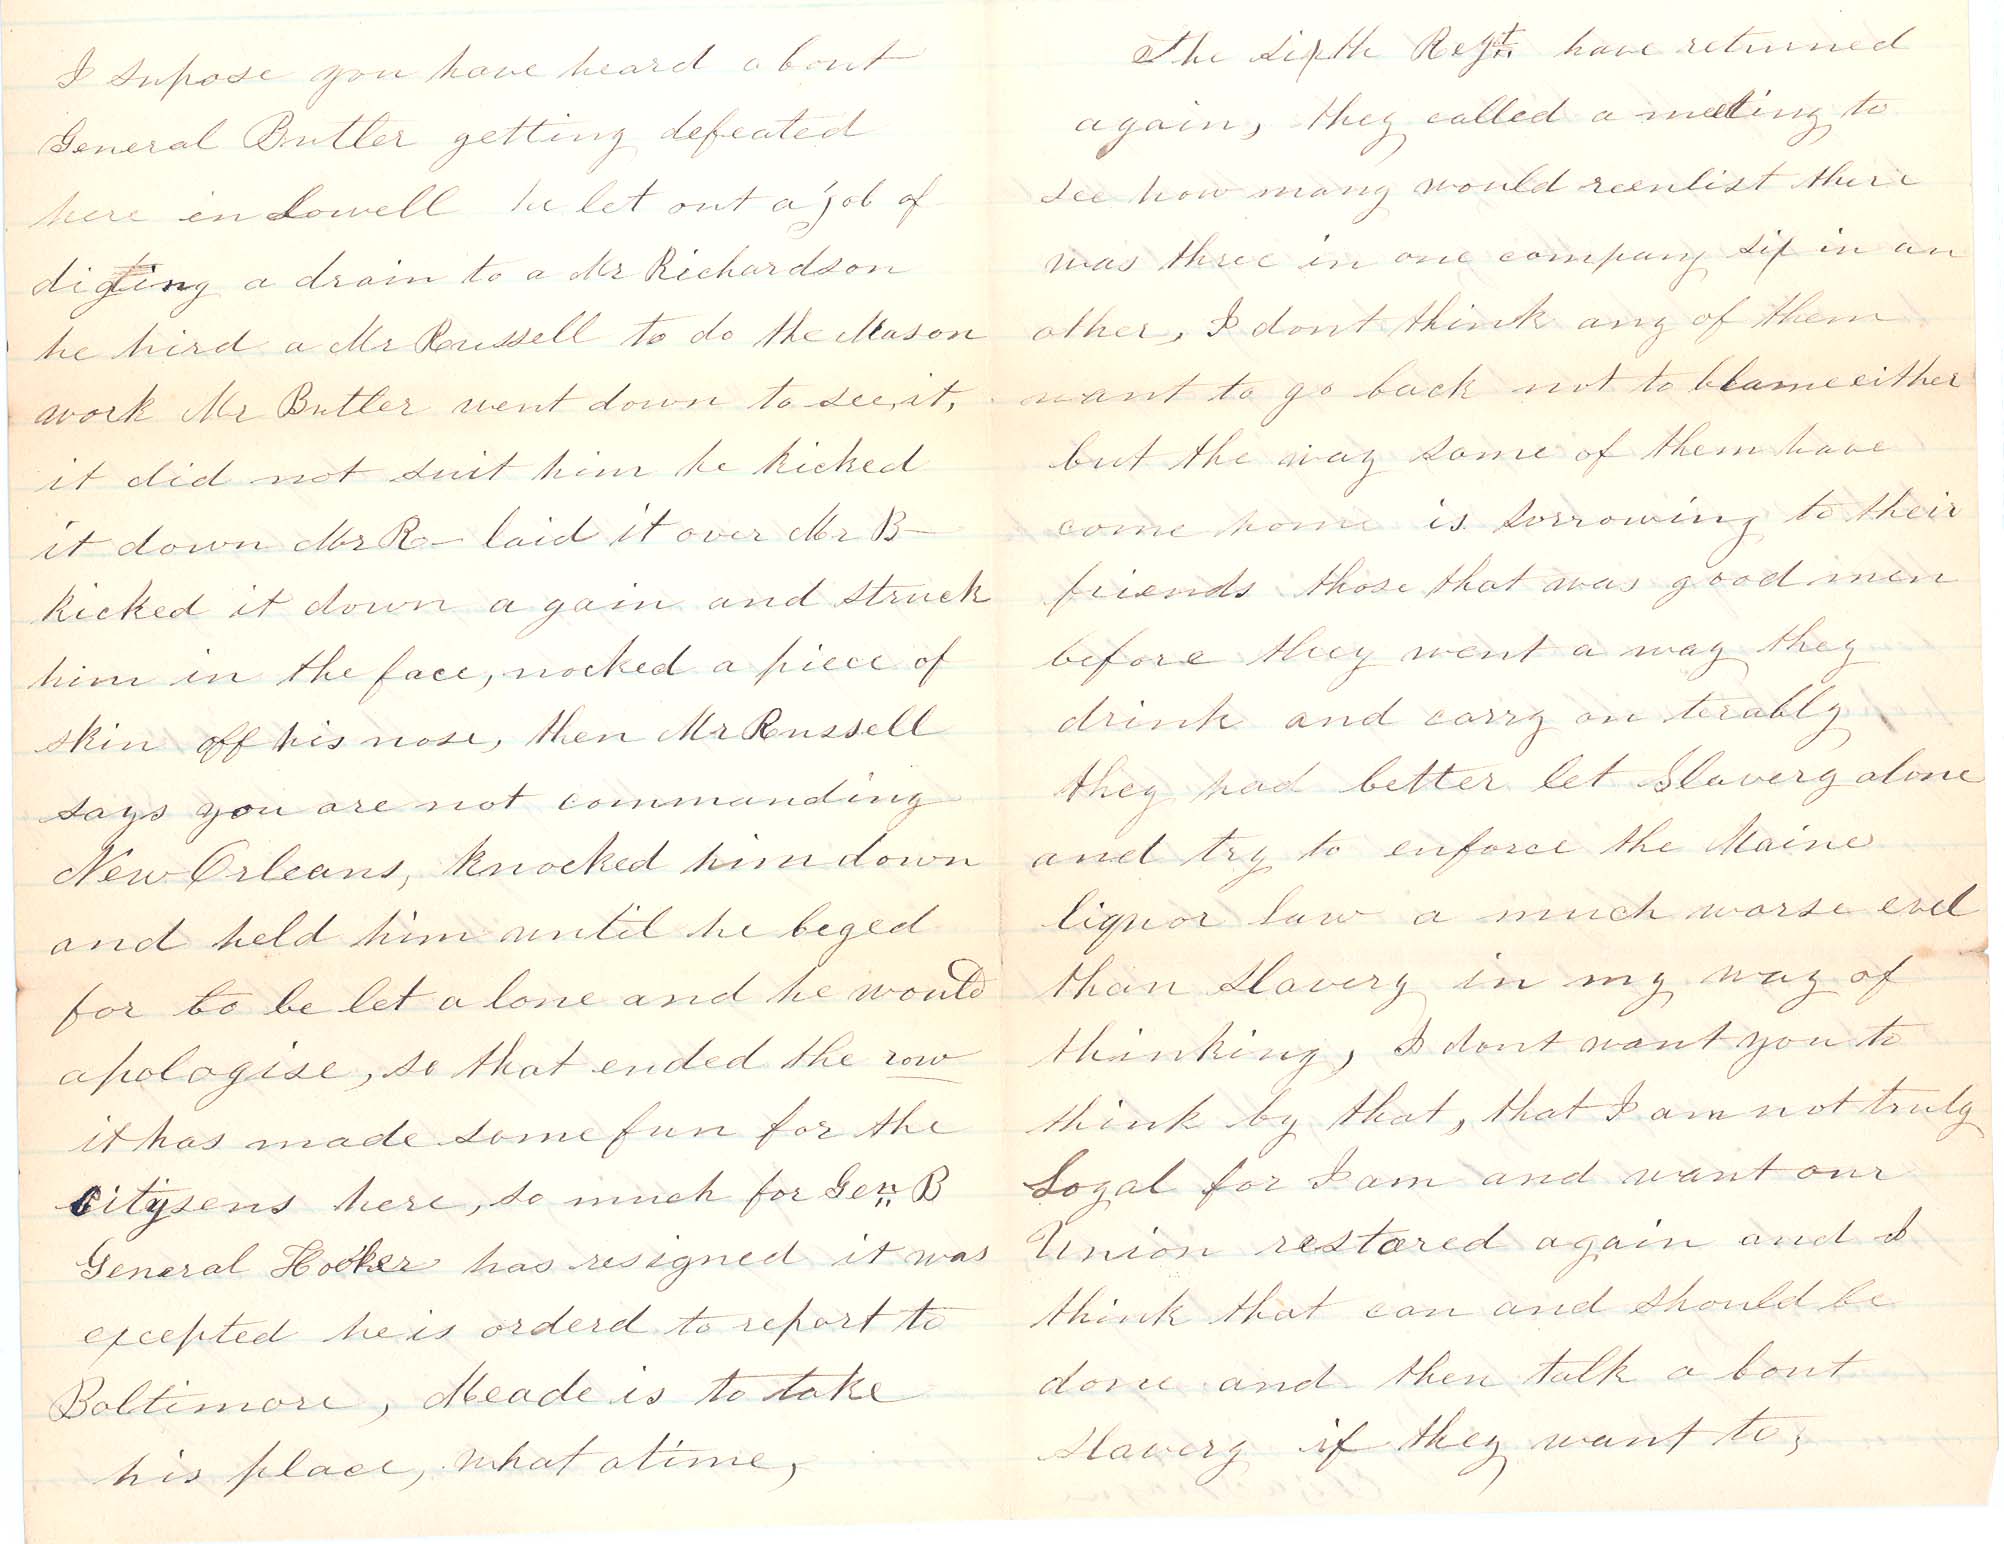 I supose you have heard a bout
General Butler getting defeated
here in Lowell he let out a job of
diging a drain to a Mr Richardson
he hird a Mr Russell to do the Mason
work Mr Butler went down to see it,
it did not suit him he kicked
it down Mr R— laid it over Mr B—
kicked it down a gain and struck
him in the face, nocked a piece of
skin off his nose, then Mr Russell
says you are not commanding
New Orleans, knocked him down
and held him until he beged
for to be let a lone and he would
apologise, so that ended the row
it has made some fun for the
citysens here, so much for Gen B
General Hooker has resigned it was
excepted he is orderd to report to
Baltimore, Meade is to take
his place, what a time,
The sixth Regt have returned
again, they called a meeting to
see how many would reenlist there
was three in one company six in an
other, I dont think any of them
want to go back not to blame either
but the way some of them have
come home is sorrowing to their
friends those that was good men
before they went a way they
drink and carry on terably
they had better let Slavery alone
and try to enforce the Maine
liquor law a much worse evel
than slavery in my way of
thinking, I dont want you to
think by that, that I am not truly
Loyal for I am and want our
Union restored again and I
think that can and should be
done and then talk a bout
slavery if they want to,